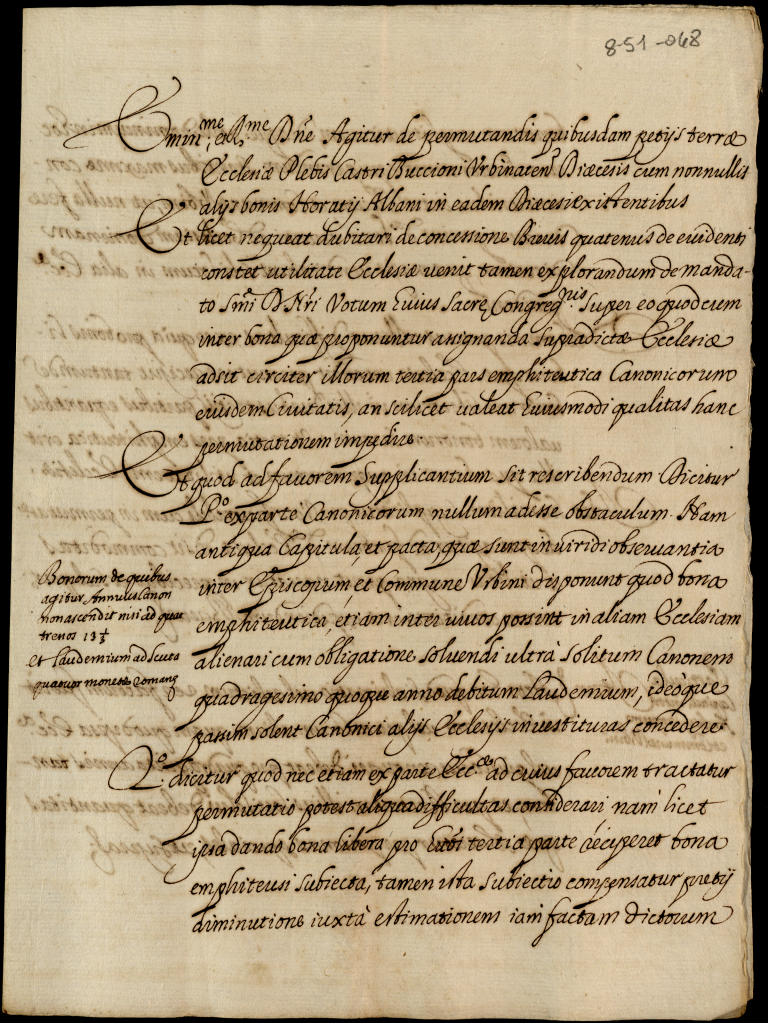 8-51-068
Emin.me et R.me Dñe Agitur de permutandis quibusdam petijs terræ
Ecclesiæ Plebis Castri Buccioni Vrbinaten. Diæcesis cum nonnullis
alijs bonis Horatij Albani in eadem Diæcesi existentibus
Et licet nequeat dubitari de concessione Breuis quatenus de euidenti
constet utilitate Ecclesiæ uenit tamen explorandum de manda-
to Smi D. Nri Votum huius Sacrę Congreg.nis super eo quod cum
inter bona quæ proponuntur assignanda supradictæ Ecclesiæ
adsit circiter illorum tertia pars emphiteutica Canonicorum
eiusdem Ciuitatis, an scilicet ualeat huiusmodi qualitas hanc
permutationem impedire.
Et quod ad fauorem supplicantium sit rescribendum. Dicitur
P.o ex parte Canonicorum nullum adesse obstaculum. Nam
antiqua Capitula, et pacta, quæ sunt in uiridi obseruantia
inter Episcopum, et Commune Vrbini disponunt quod bona
emphiteutica, etiam inter uiuos possint in aliam Ecclesiam
alienari cum obligatione soluendi ultrà solitum Canonem
quadragesimo quoque anno debitum Laudemium, ideòque
passim solent Canonici alijs Ecclesijs inuestituras concedere.
Bonorum de quibus
agitur Annuus Canon
non ascendit nisi ad quat
trenos 13½
et Laudemium ad scuta
quatuor monetæ romanę
2.o dicitur quod nec etiam ex parte Ecc.æ ad cuius fauorem tractatur
permutatio potest aliqua difficultas considerari, nam licet
ipsa dando bona libera pro tertia parte reciperet bona
emphiteusi subiecta, tamen ista subiectio compensatur pretij
diminutione iuxtà estimationem iam factam dictorum